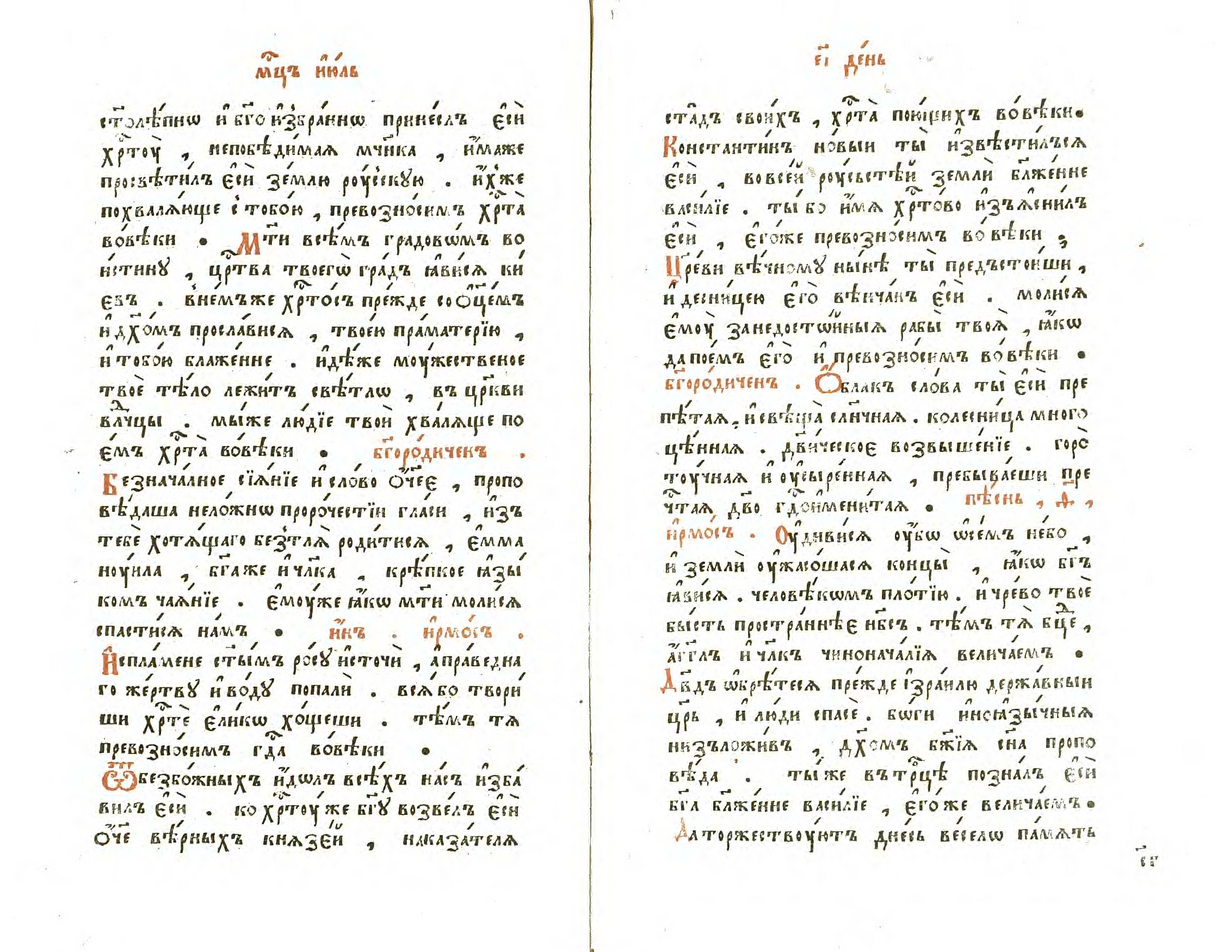 мⷭ҇цъ ию́ль
ст҃олѣ́пнѡ и҆ бг҃оизбра́ннѡ прине́слъ є҆сѝ
хрⷭ҇тоу̀ , непобѣди́мая мч҃нка , и҆́маже
просвѣти́лъ є҆сѝ зе́млю роу́сскую . и҆́хже
похваля́юще с тобо́ю , превозно́симъ хрⷭ҇та̀
во́вѣки • Мт҃и всѣ́мъ градовѡ́мъ во
и́стинꙋ , црⷭ҇тва твоегѡ̀ гра́дъ ꙗ҆ви́ся ки
євъ . в не́мъже хрⷭ҇то́съ пре́жде со ѻ҆ц҃е́мъ
и҆ дх҃омъ просла́вися , твое́ю пра́матерїю ,
и҆ тобо́ю блаже́нне . и҆дѣ́же моу́жественое
твоѐ тѣ́ло лежи́тъ свѣ́тлѡ , въ цр҃кви
влⷣчцы . мы́же лю́дїе твоѝ хваля́ще по
є́мъ хрⷭ҇та̀ во́вѣки • бг҃оро́диченъ .
Безнача́лное сїѧ́нїе и҆ сло́во ѻ҆́ч҃еє , пропо
вѣ́даша нело́жнѡ проро́честїи гла́си , и҆зъ
тебѐ хотя́щаго без̾тля̀ роди́тися , є҆мма
ноуи́ла , бг҃а же и҆ чл҃ка , крѣ́пкое ꙗ҆зы́
комъ ча́янїе . є҆моу́же ꙗ҆́кѡ мт҃и моли́ся
спасти́ся на́мъ • и҆́нъ . и҆рмо́съ .
И҆с пла́мене ст҃ы́мъ ро́сꙋ и҆сточѝ , а҆ пра́ведна
го же́ртвꙋ и҆ во́дꙋ попалѝ . вся́ бо твори́
ши хрⷭ҇тѐ є҆ли́кѡ хо́щеши . тѣ́мъ тя
превозно́симъ гдⷭ҇а во́вѣки •
Ѿ безбо́жныхъ и҆́дѡлъ всѣ́хъ на́съ и҆зба́
вилъ є҆сѝ . ко хрⷭ҇тоу́ же бг҃ꙋ возве́лъ є҆сѝ
ѻ҆́ч҃е вѣ́рныхъ князе́й , наказа́теля
є҃і де́нь
ста́дъ свои́хъ , хрⷭ҇та̀ пою́щихъ во́вѣки•
Константи́нъ но́выи ты̀ и҆звѣсти́лъся
є҆сѝ , во все́й роу́сьстѣ́й землѝ бл҃же́нне
васи́лїе . ты́ бо и҆́мя хрⷭ҇то́во и҆зъясни́лъ
є҆сѝ , є҆го́же превозно́симъ во́ вѣки ;
Цр҃е́ви вѣ́чномꙋ ны́нѣ ты̀ предъстои́ши ,
и҆ десни́цею є҆гѡ̀ вѣнча́нъ є҆сѝ . моли́ся
є҆моу̀ за недосто́йныя рабы̀ твоя̀ , ꙗ҆́кѡ
да пое́мъ є҆го̀ и҆ превозно́симъ во́ вѣки •
бг҃оро́диченъ . Ѻ҆́блакъ сло́ва ты̀ є҆сѝ пре
пѣ́тая , и҆ свѣща̀ сл҃нчная . колесни́ца много
цѣ́нная . дв҃и́ческоє возвыше́нїе . горо̀
тоу́чная и҆ оусы́ренная , пребыва́еши пре
чтⷭ҇ая дв҃о гдⷭ҇оимени́тая • пѣ́снь , д҃ ,
и҆рмо́съ . Оу҆диви́ся оу҆́бѡ ѡ҆ се́мъ не́бо ,
и҆ землѝ оу҆жасо́шася концы̀ , ꙗ҆́кѡ бг҃ъ
ꙗ҆ви́ся . человѣ́кѡмъ пло́тїю . и҆ чре́во твоѐ
бы́сть простра́ннѣє нб҃съ . тѣ́мъ тя̀ бцⷣе ,
а҆́гг҃лъ и҆ чл҃къ чинонача́лїя велича́емъ •
Дв҃дъ ѡ҆брѣ́теся пре́жде і҆зра́илю держа́вныи
цр҃ь , и҆ лю́ди спасѐ . бо́ги и҆ноꙗзы́чныя
низъложи́въ , дх҃омъ бж҃їя сн҃а пропо
вѣ́да . ты́ же в трⷪ҇цѣ позна́лъ є҆сѝ
бг҃а бл҃же́нне васи́лїе , є҆го́ же велича́емъ •
Да торжествоую́тъ дне́сь ве́селѡ па́мять
с҃г